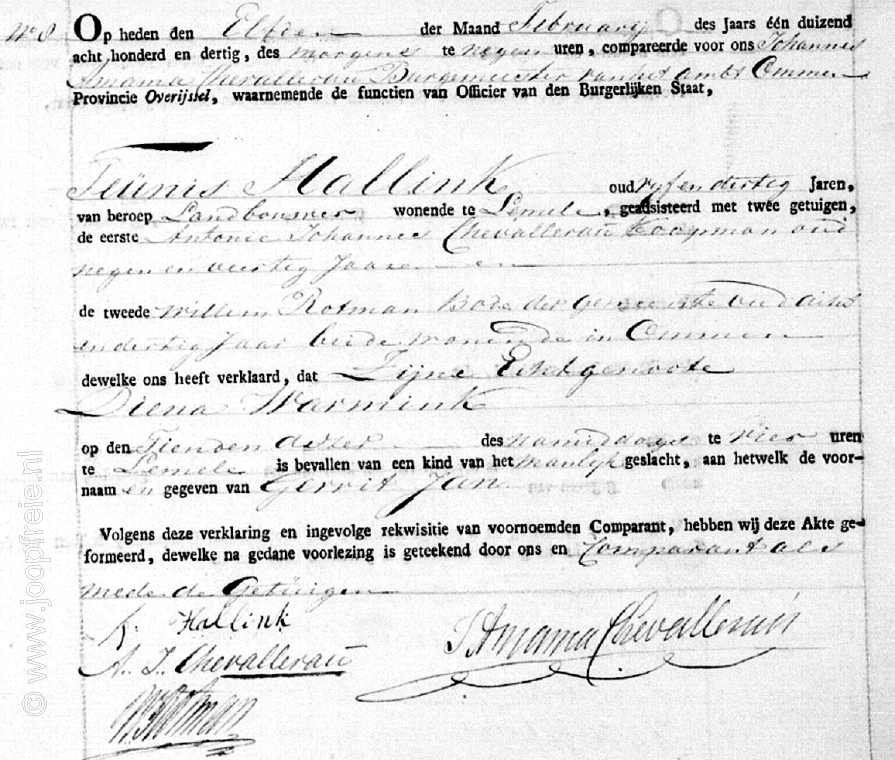 No 8 Op heden den Elfden der Maand Februarij des Jaars één duizend
acht honderd en dertig, des morgens te negen uren, compareerde voor ons Johannes
Amama Chevallerau Burgemeester van het ambt Ommen
Provincie Overijssel, waarnemende de functien van Officier van den Burgerlijken Staat,
Teünis Hallink oud vyf en dertig Jaren,
van beroep Landbouwer wonende te Lemele, geadsisteerd met twee getuigen,
de eerste Antonie Johannes Chevallerau Koopman oud
negen en veertig Jaare en
de tweede Willem Rotman Bode der gemeente oud acht
en dertig Jaar beide wonende in Ommen
dewelke ons heeft verklaard, dat Zijne Echtgenoote
Diena Warmink
op den Tienden dezer des namiddags te vier uren
te Lemele is bevallen van een kind van het manlijk geslacht, aan hetwelk de voor-
naam en gegeven van Gerrit Jan
Volgens deze verklaring en ingevolge rekwisitie van voornoemden Comparant, hebben wij deze Akte ge-
formeerd, dewelke na gedane voorlezing is geteekend door ons en Comparant als
mede de Getüigen
Hallink
A. J. Chevallerau
J Amama Chevallerau
W Rotman
© www.joopfreie.nl